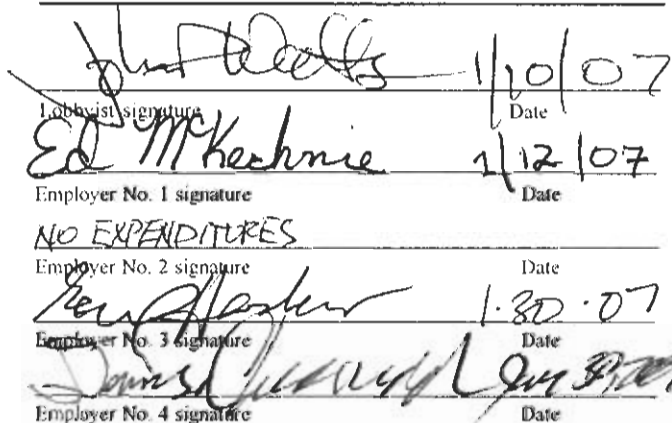 John Watts 1/10/07
Lobbyist signature Date
Ed McKechnie 1/12/07
Employer No. 1 signature Date
NO EXPENDITURES
Employer No. 2 signature Date
1.30.07
Employer No. 3 signature Date
Employer No. 4 signature Date